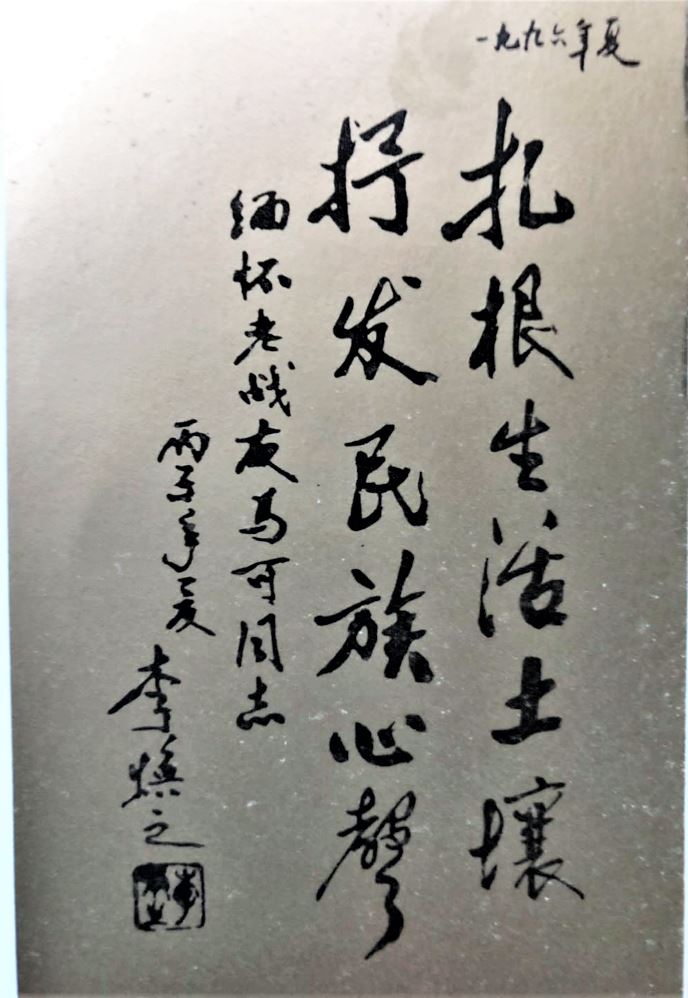 一九九六年夏
扎根生活土壤
抒发民族心聲
缅怀老战友马可同志
丙子年夏
李焕之